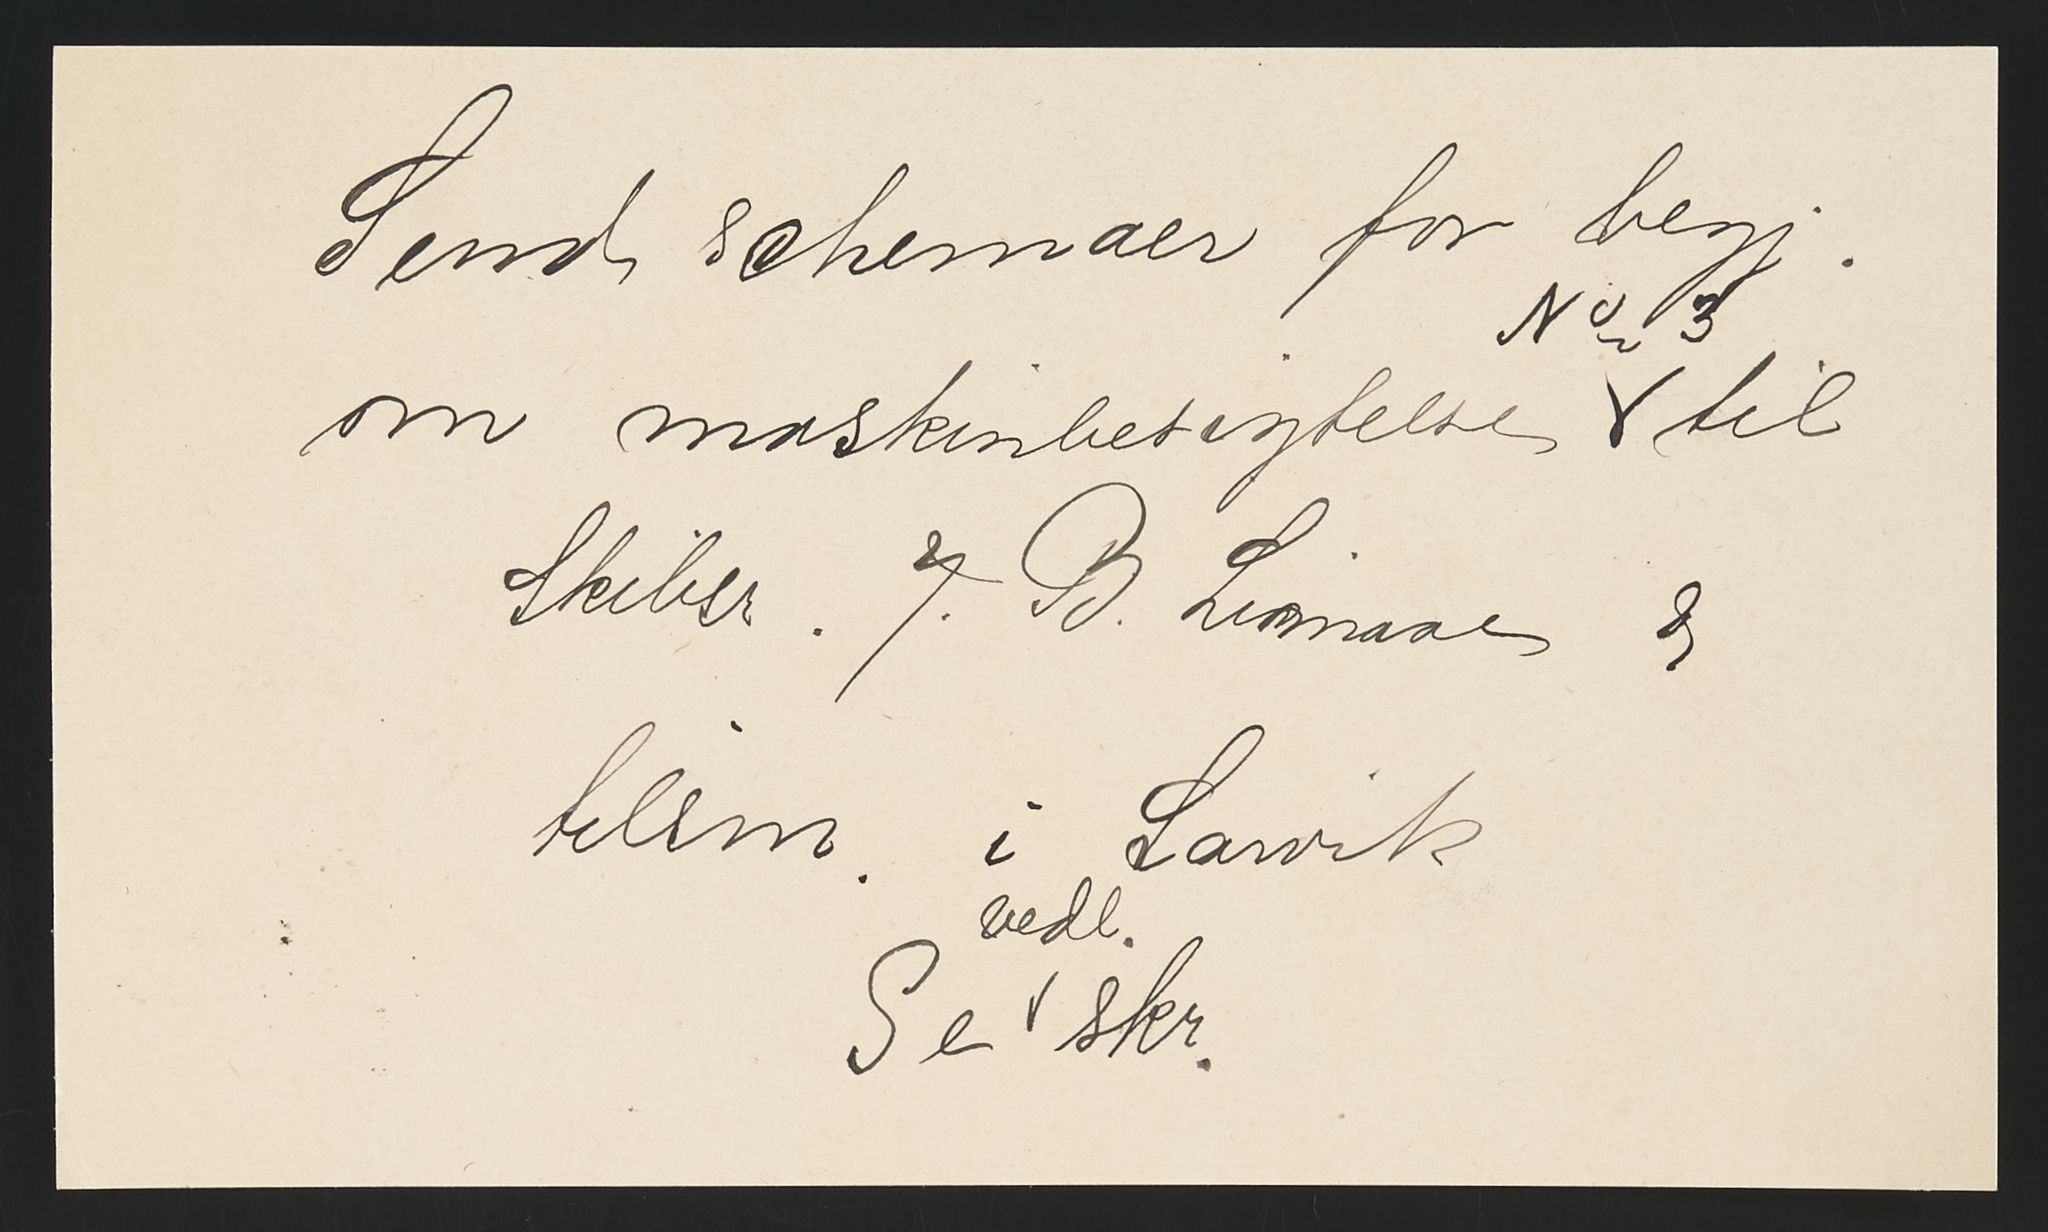 Send schemaer for begj.
No 3
om maskinbesigtelse til
Skibsr. J. B. Linnaae &
tilsm. i Larvik
vedl.
Se skr.